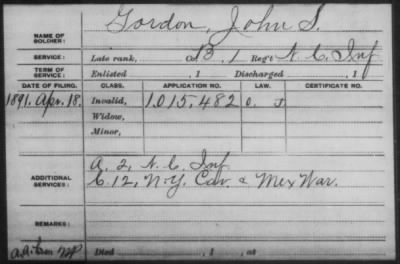 Gordon, John S.
NAME OF SOLDIER:
SERVICE: Late rank, B, 1, Reg't N. C. Inf
TERM OF SERVICE: Enlisted , 1 Discharged , 1
DATE OF FILING. CLASS. APPLICATION NO. LAW. CERTIFICATE NO.
1891. Apr. 18. Invalid, 1.015.482
Widow,
Minor,
ADDITIONAL SERVICES: A. 2, N. C. Inf
C. 12, N.Y. Cav. & Mex War.
REMARKS:
Died , 1 , at